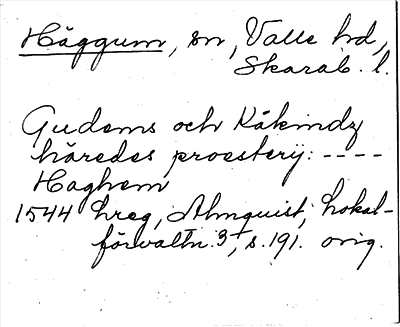 Häggum, sn, Valle hd,
Skarab. l.
Gudems och Kåkindz
häredes proestery: ----
Haghem
1544 hreg, Almquist, Lokal-
förvaltn. 3, s. 191. orig.